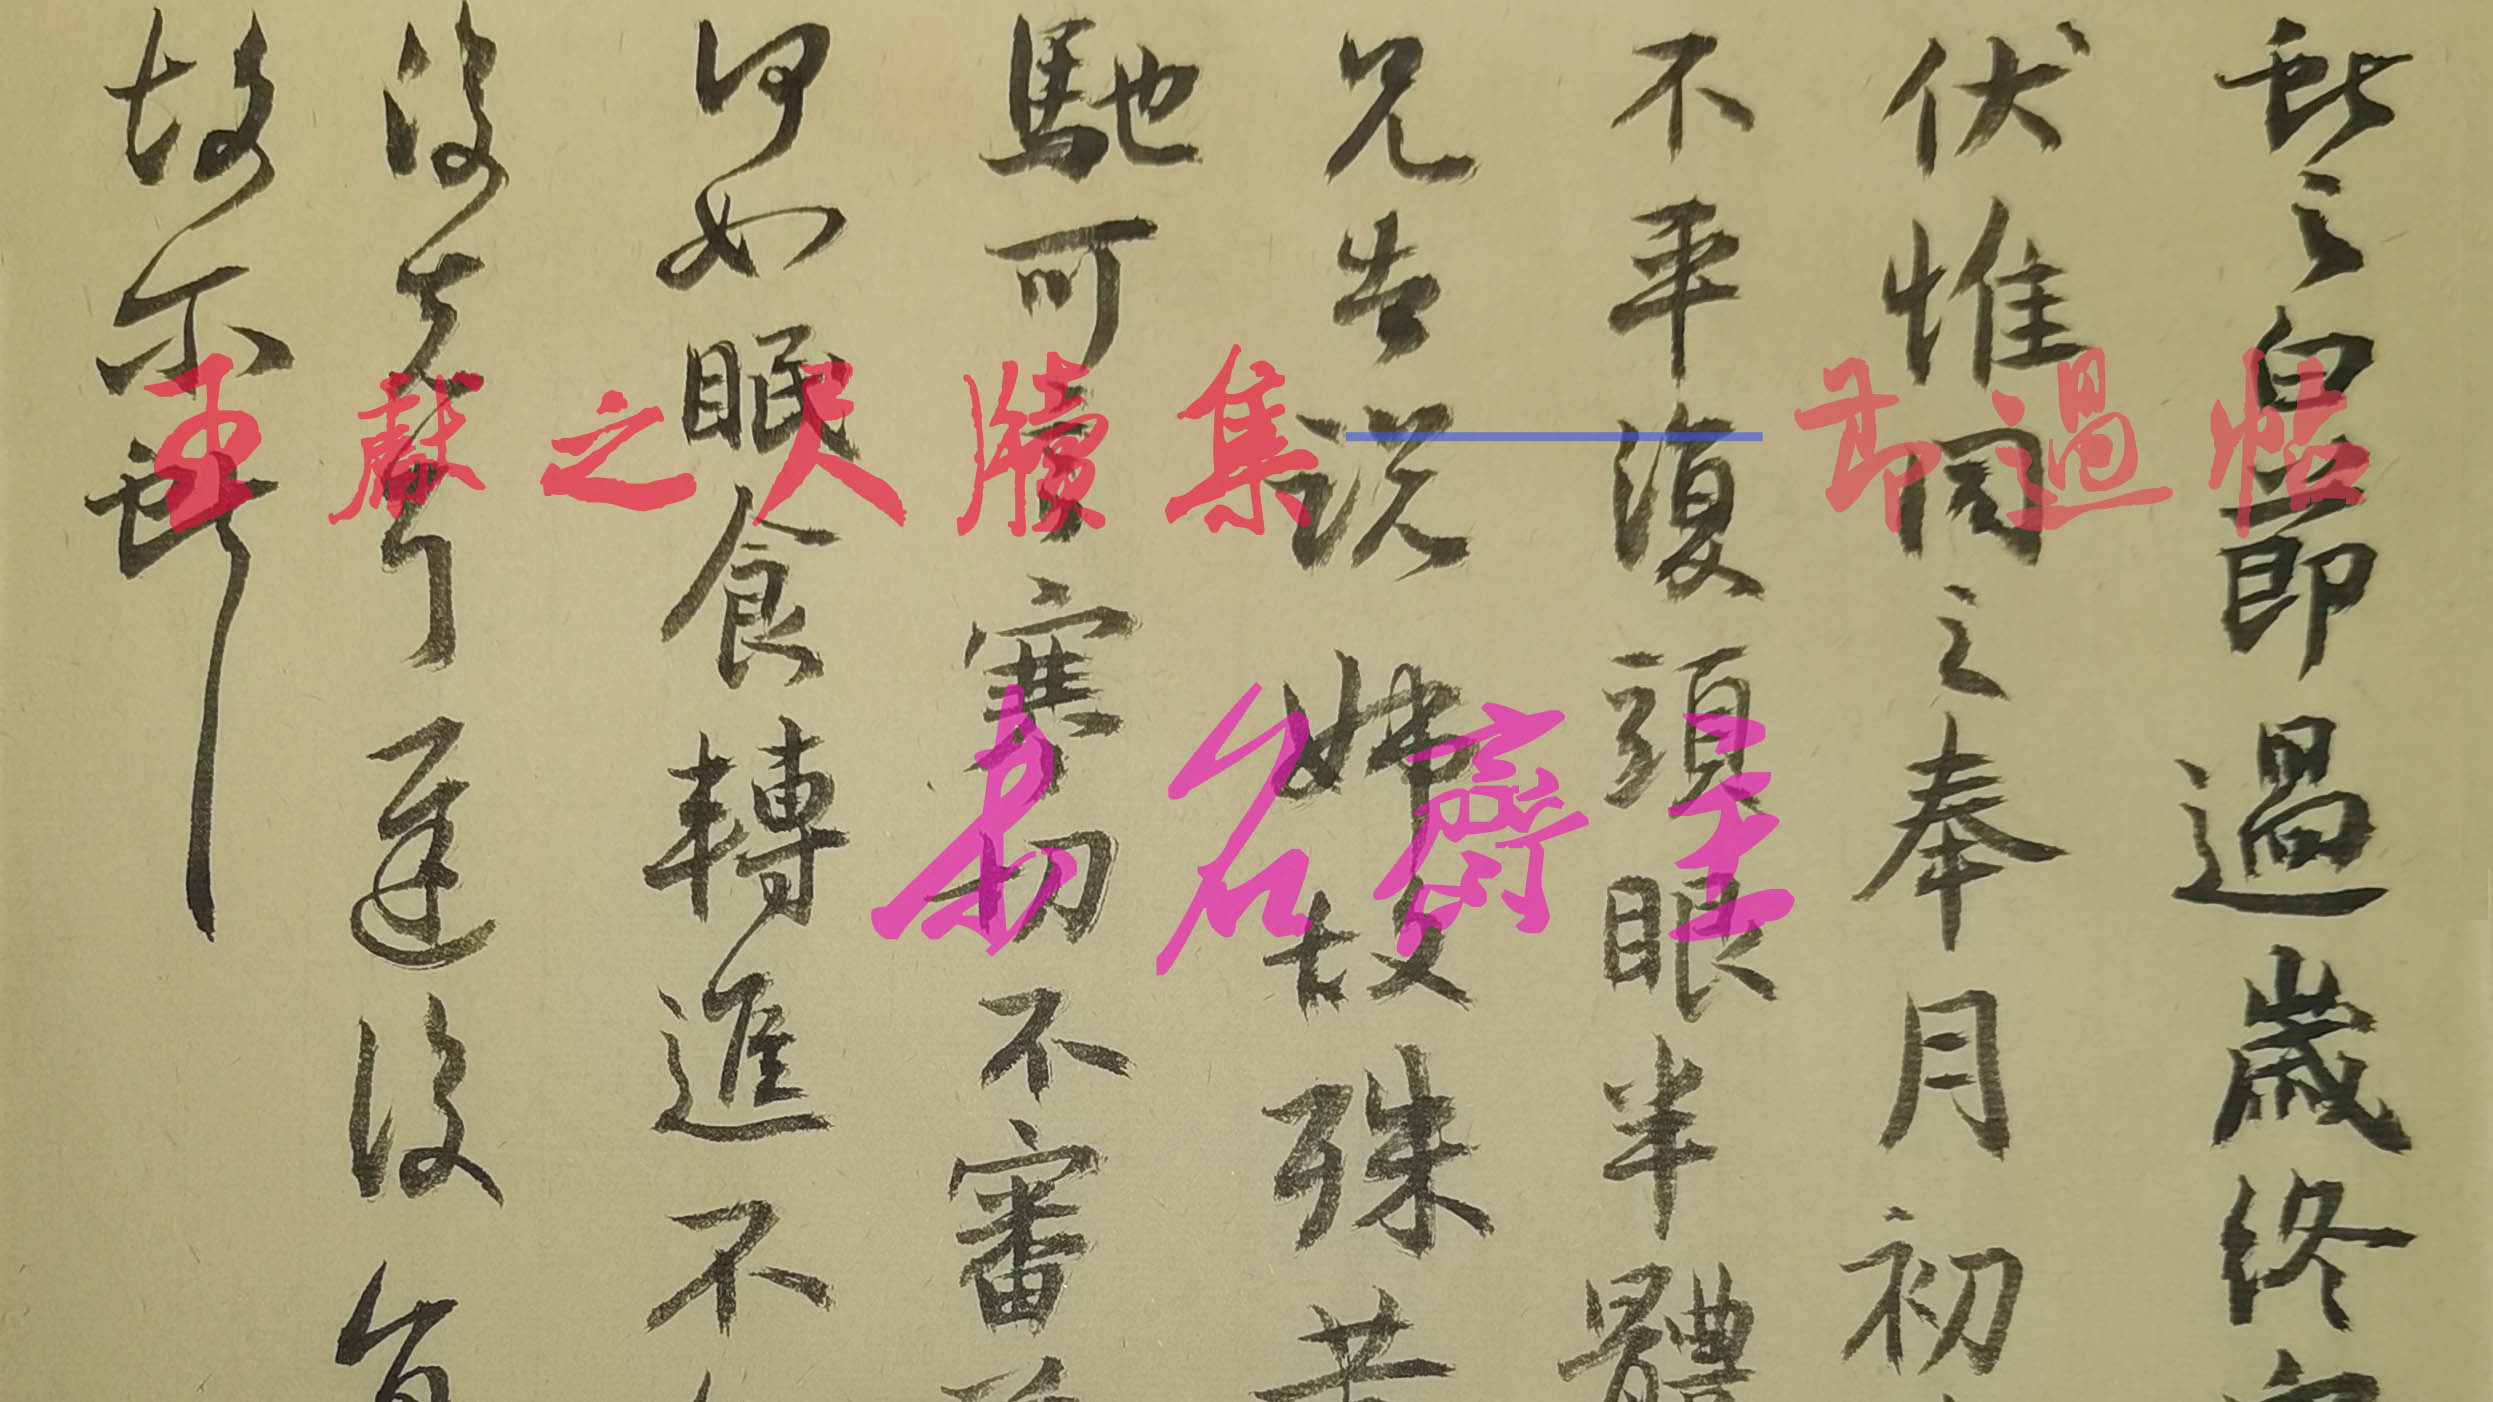 王獻之尺牘集——節過帖
石齋主
獻之白節過歲終
伏惟同之奉月初
不平復頭眼半體
兄告說姊故殊
馳可言寒切不審
何如眠食轉進不
遲後
故尔